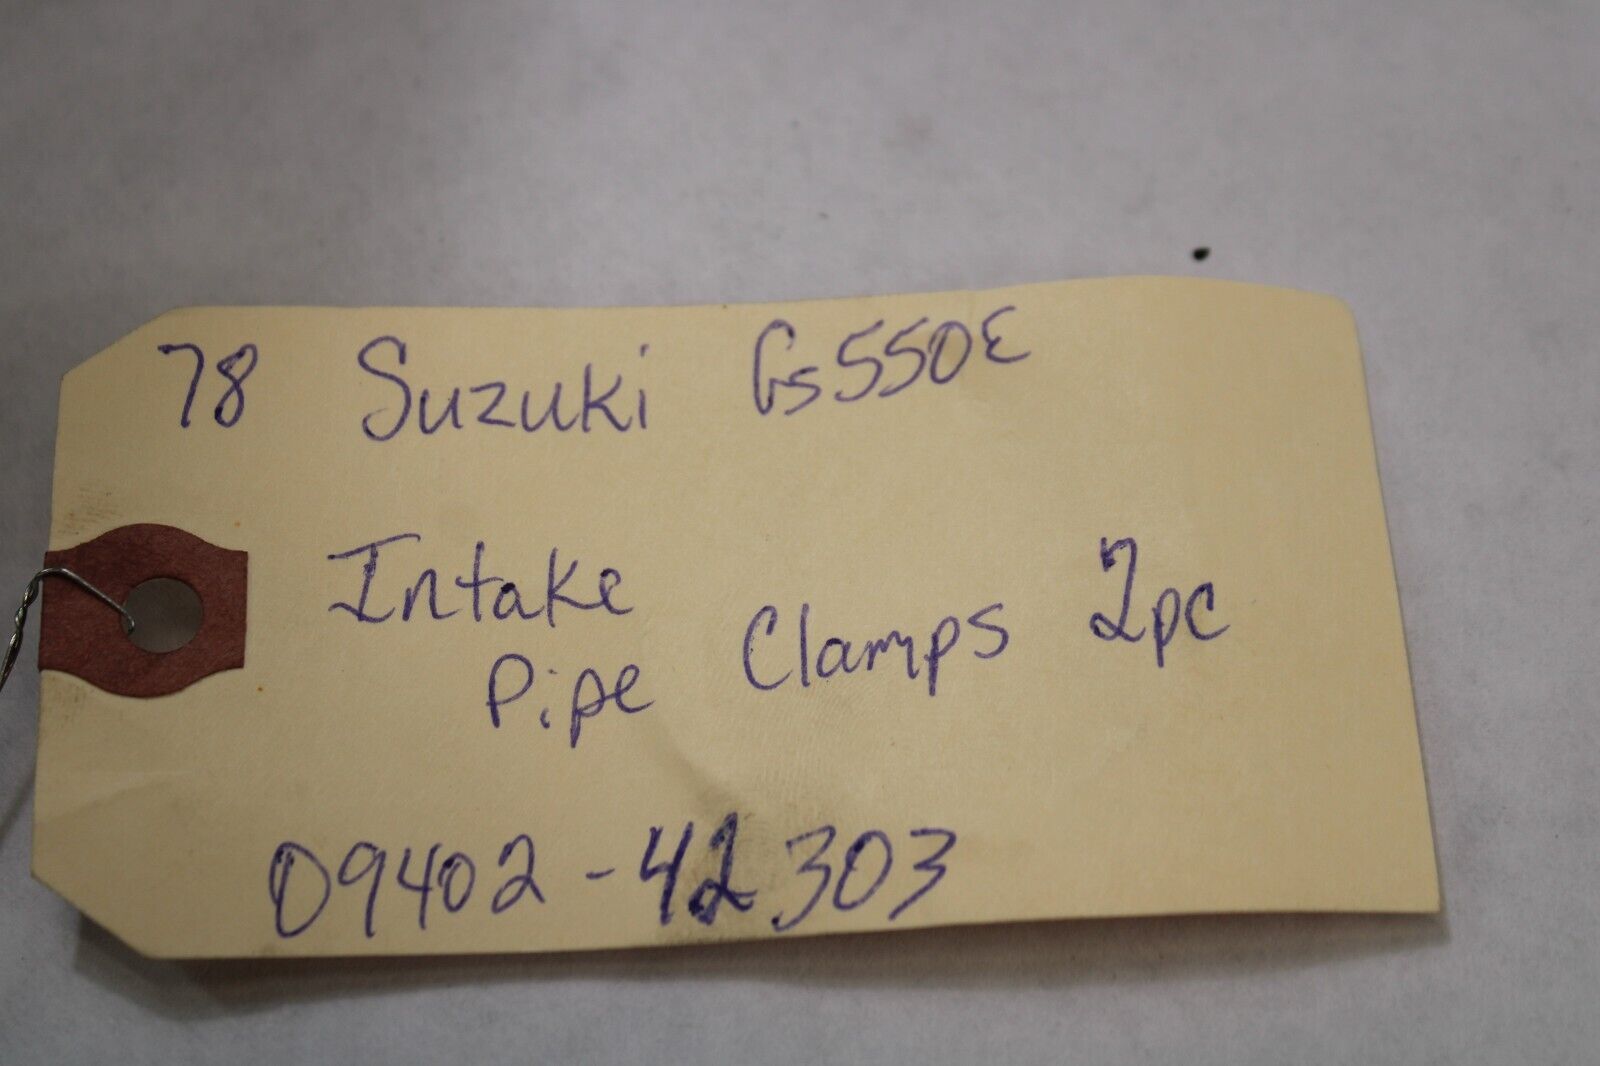 78 Suzuki Gs550E
Intake
Pipe Clamps 2pc
09402-42303